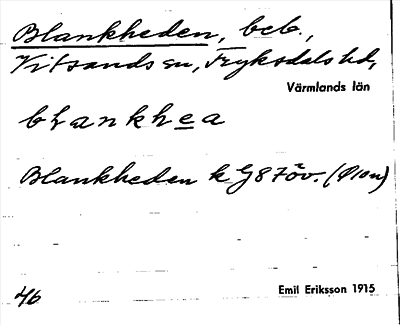 Blankheden, beb.,
Vitsands sn, Fryksdals hd,
Värmlands län
blankhea
Blankheden k G87öv.
46
Emil Eriksson 1915